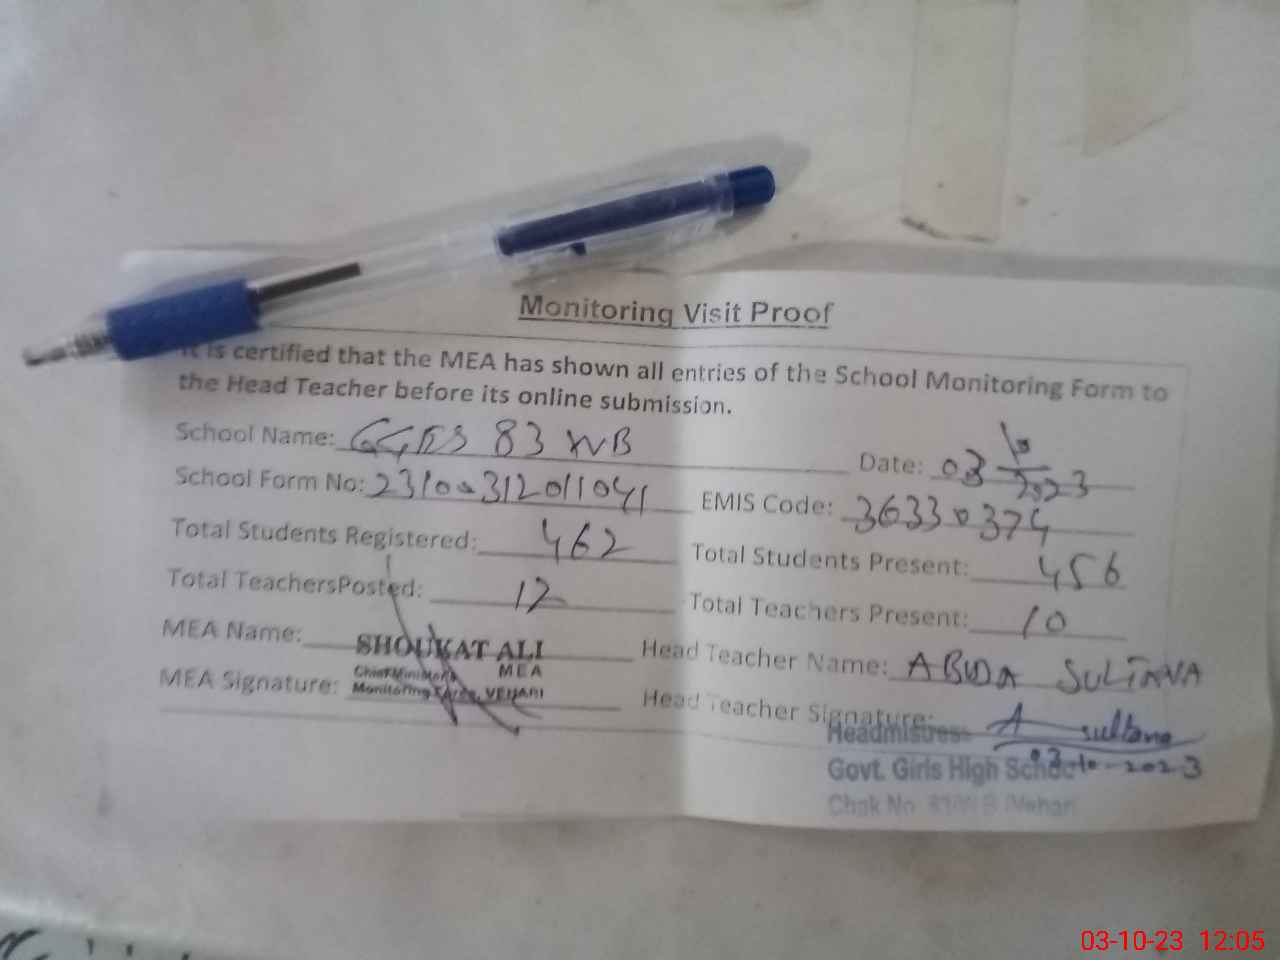 Monitoring Visit Proof
It is certified that the MEA has shown all entries of the School Monitoring Form to
the Head Teacher before its online submission.
School Name: GGES 83 WB Date: 03 10 2023
School Form No: 23100312011041 EMIS Code: 36330374
Total Students Registered: 462 Total Students Present: 456
Total TeachersPosted: 12 Total Teachers Present: 10
MEA Name: SHOUKAT ALI Head Teacher Name: SULTANA
Chief Minister's MEA
MEA Signature: Monitoring Force, VEHARI Head Teacher Signature: A sultana
Headmistress
03-10-2023
Govt. Girls High School
Chak No. W.B (Vehari
03-10-23 12:05